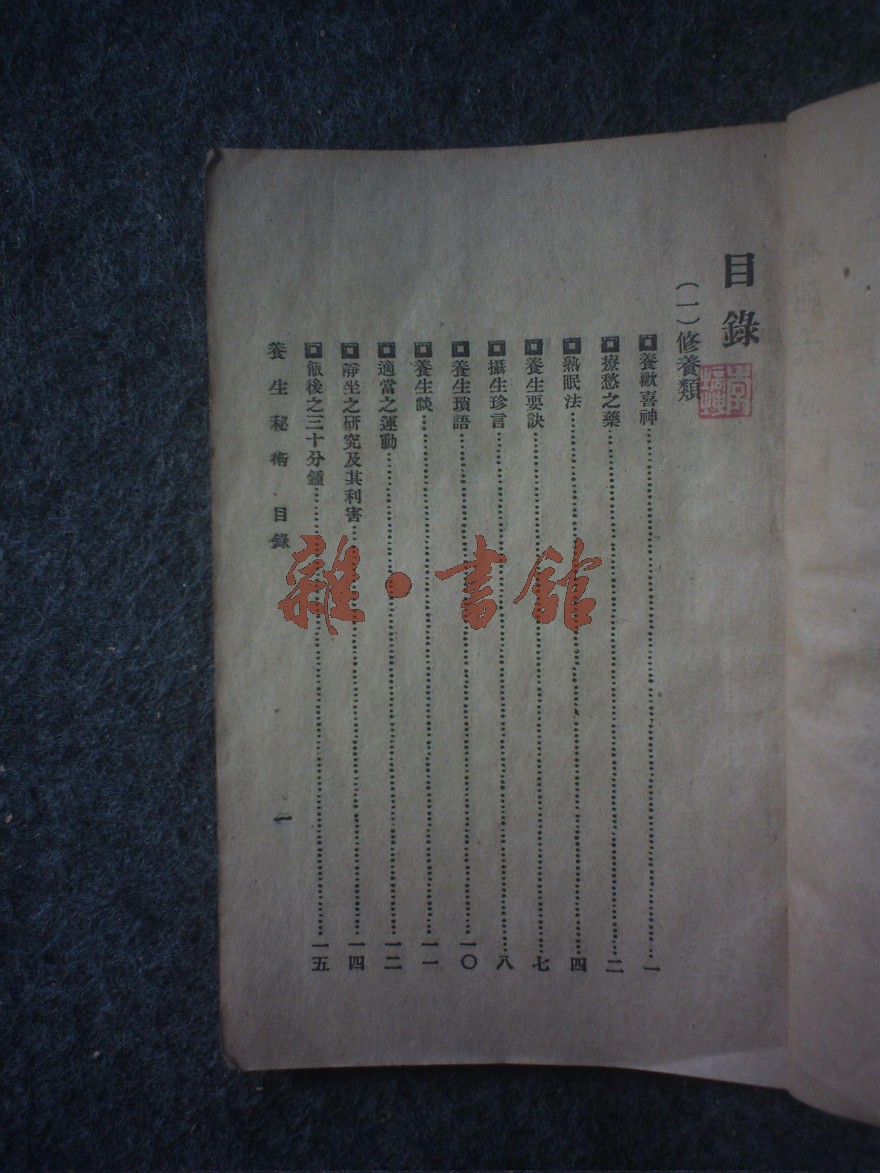 目錄
(一)修養類
養歡喜神……一
療愁之藥……二
熟眠法……四
養生要訣……七
攝生珍言……八
養生瑣語……一〇
養生談……一一
適當之運動……一二
靜坐之研究及其利害……一四
飯後之三十分鍾……一五
養生秘術 目錄 一
雜·書館